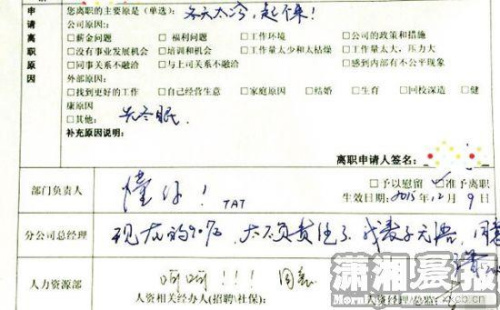 申请离职原因
您离职的主要原是(单选): 冬天太冷,起不来!
公司原因:
□薪金问题 □福利问题 □工作环境 □公司的政策和措施
□没有事业发展机会 □培训和机会 □工作量太少和太枯燥 □工作量太大,压力大
□同事关系不融洽 □与上司关系不融洽 □感到内部有不公平现象
外部原因:
□找到更好的工作 □自己经营生意 □家庭原因 □结婚 □生育 □回校深造 □健
康原因
□其他: 去冬眠
补充原因说明:
离职申请人签名:
部门负责人 懂你! TAT □予以慰留 准予离职
生效日期: 2015年12月9日
分公司总经理 现在的90后,太不负责任了,我表示无语,同意
人力资源部 呵呵!!! 同意
人资相关经办人(招聘\社保): 人资经理/总监:
潇湘晨报